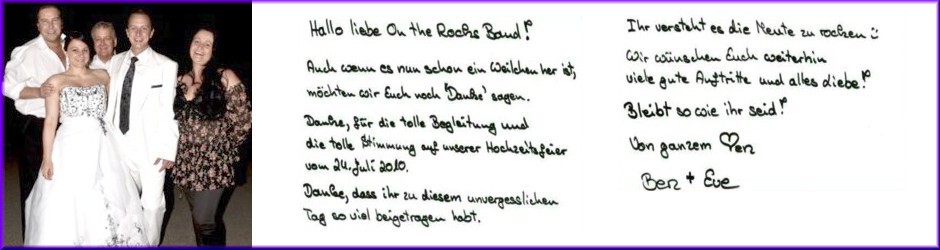 Hallo liebe On the Rocks Band!
Auch wenn es nun schon ein Weilchen her ist,
möchten wir Euch noch 'Danke' sagen.
Danke, für die tolle Begleitung und
die tolle Stimmung auf unserer Hochzeitsfeier
vom 24. Juli 2010.
Danke, dass ihr zu diesem unvergesslichen
Tag so viel beigetragen habt.
Ihr versteht es die Meute zu rocken :)
Wir wünschen Euch weiterhin
viele gute Auftritte und alles Liebe!
Bleibt so wie ihr seid!
Von ganzem ♡en
Ben + Eve